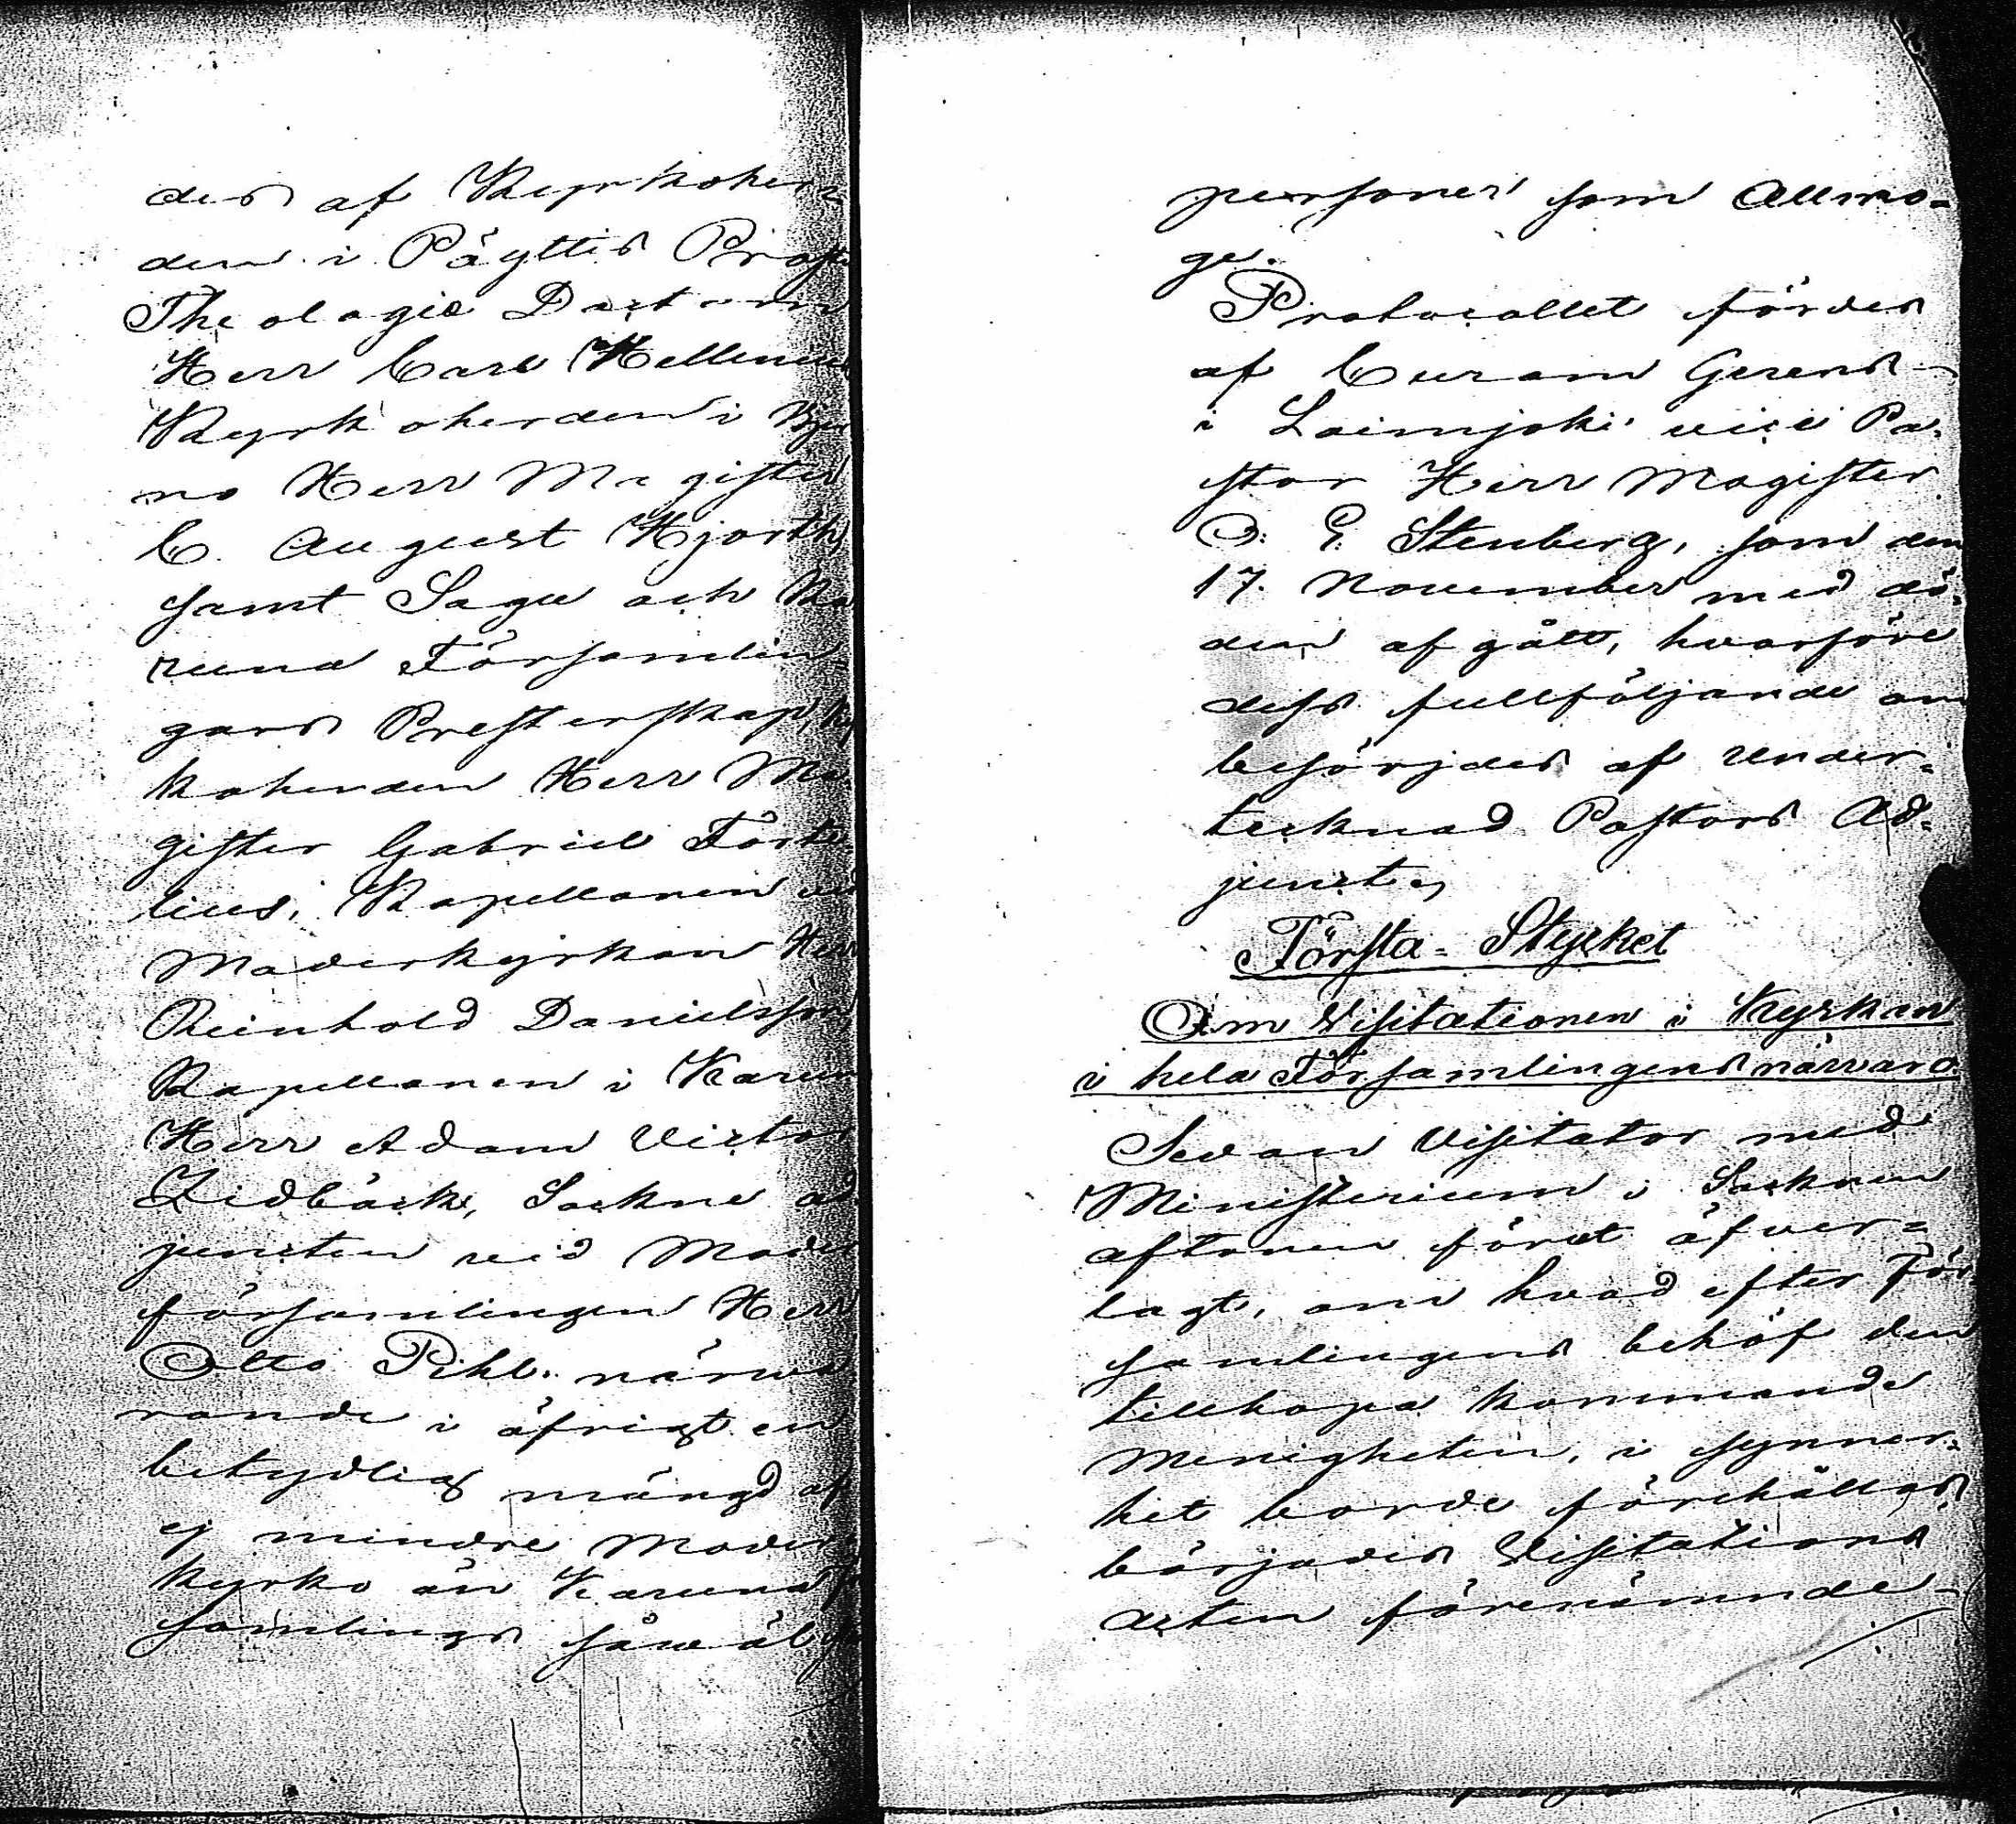 des af Kyrkoher=
den i Pöyttis Prosten
Theologie Doctorn
Herr Carl Hellenius
Kyrkoherden i Bjer
no Herr Magister
C. August Hjorth,
samt Sagu och Ka
runa Församlin=
gars Presterskap, Kyr
koherden Herr Ma
gister Gabriel Forte=
lius, Kapellanen vid
Moderkyrkan Herr
Reinhold Danielsson
Kapellanen i Karuna
Herr Adam Victor
Zidbäck, Sockne ad
juncten vid Moder
församlingen Herr
Otto Pihl. närva
rande i öfrigt en
betydlig mängd af
ej mindre Moder
kyrko än Karuna
samlings såväl
personer som Allmo=
ge.
Protocollet fördes
af Curam Gerens
i Loimjoki vice Pa=
stor Herr Magister
O. E. Stenberg, som den
17. November med dö=
den afgått, hvarföre
dess fullföljande om
besörjdes af under=
tecknad Pastors Ad=
junct,
Första Stycket
Om Visitationen i Kyrkan
i hela Församlingens närvaro.
Sedan Visitator med
Ministerium i Socknen
aftonen förut öfver=
lagt, om hvad efter För
samlingens behöf den
tillhopa kommande
Menigheten, i synner=
het borde förehållas,
börjades Visitations
acten förenämnde